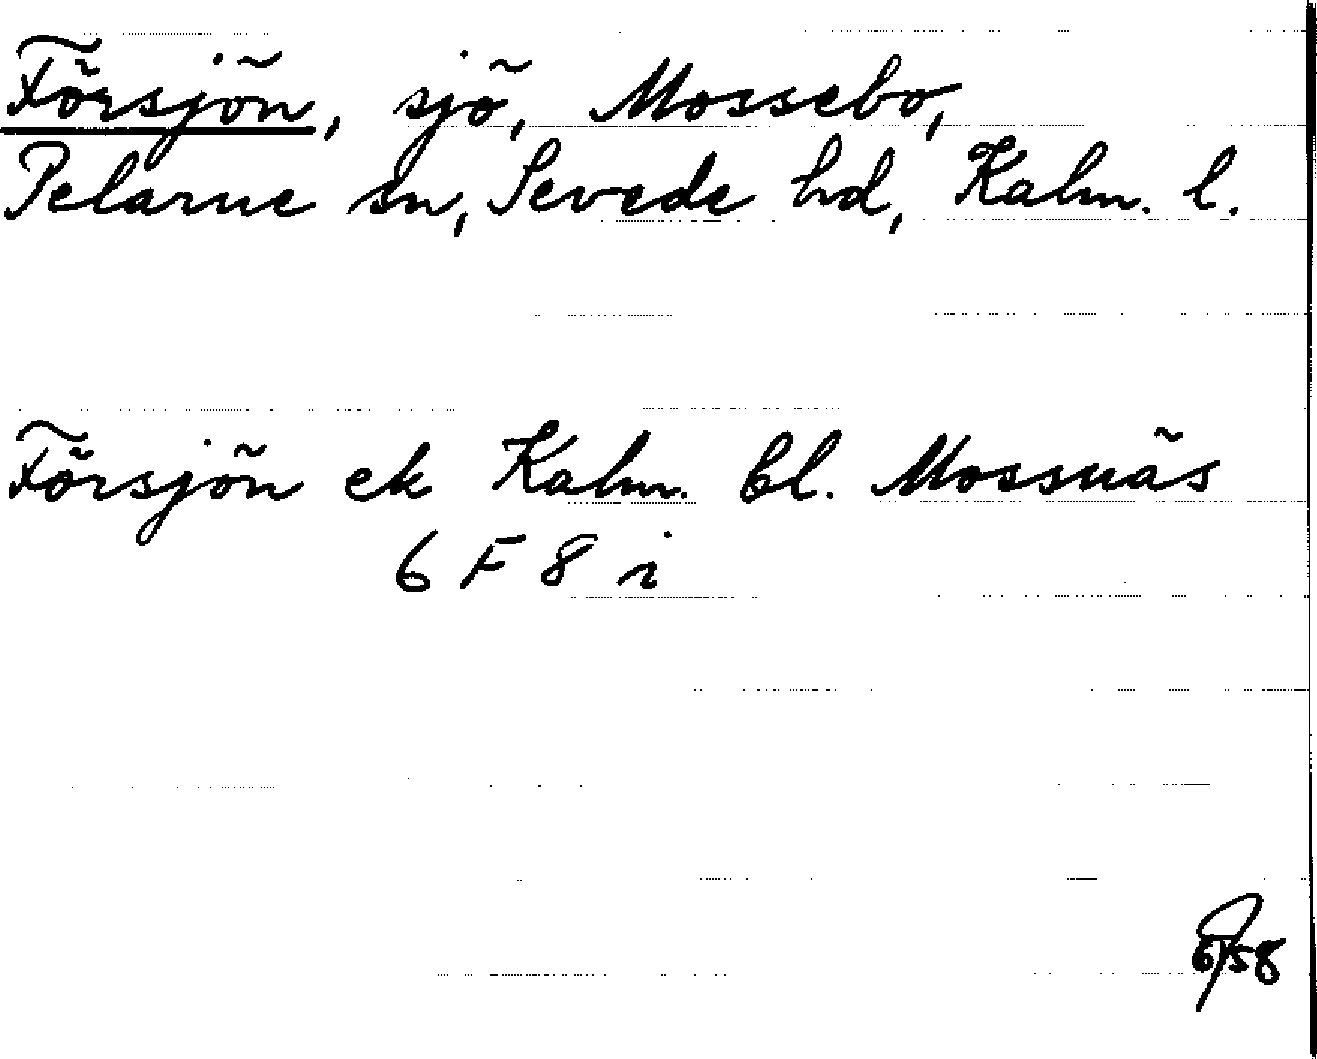 Försjön, sjö, Mossebo,
Pelarne sn, Sevede hd, Kalm. l.
Försjön ek Kalm. bl. Mossnäs
6 F 8 i